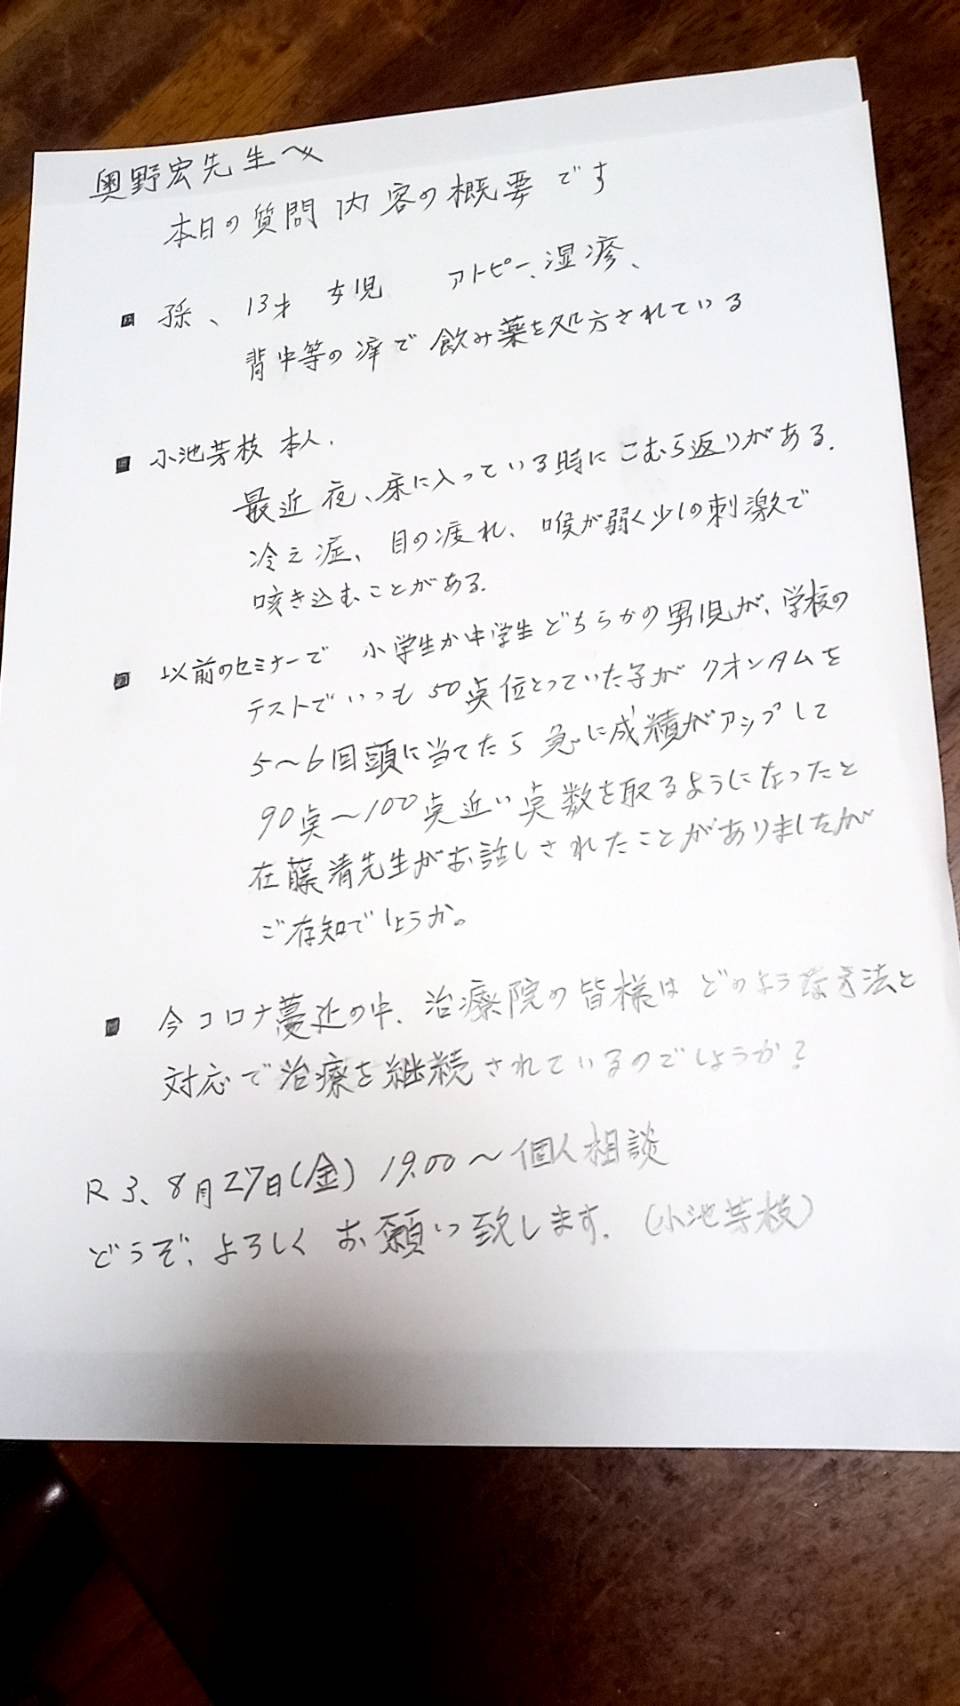 奥野宏先生へ
本日の質問内容の概要です
■ 孫、13才 女児 アトピー、湿疹、
背中等の痒で飲み薬を処方されている
■ 小池芳枝 本人.
最近 夜、床に入っている時にこむら返りがある.
冷え症、目の疲れ、喉が弱く少しの刺激で
咳き込むことがある.
■ 以前のセミナーで 小学生か中学生どちらかの男児が、学校の
テストでいつも50点位とっていた子がクオンタムを
5〜6回頭に当てたら急に成績がアップして
90点〜100点近い点数を取るようになったと
在藤清先生がお話しされたことがありましたが
ご存知でしょうか。
■ 今コロナ蔓延の中、治療院の皆様はどのような方法と
対応で治療を継続されているのでしょうか?
R3、8月27日(金) 19.00〜個人相談
どうぞ、よろしくお願い致します. (小池芳枝)